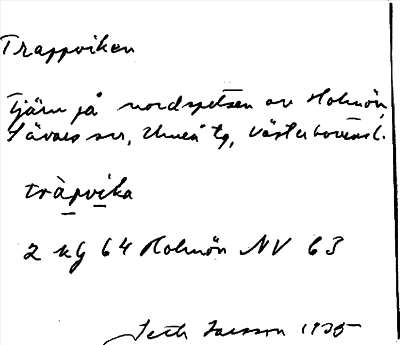 Trappviken
Tjärn på nordspetsen av Holmön,
Sävars sn, Umeå tg, Västerbottensl.
tràpvika
2 kg 64 Holmön NV 63
Seth Larsson 1935